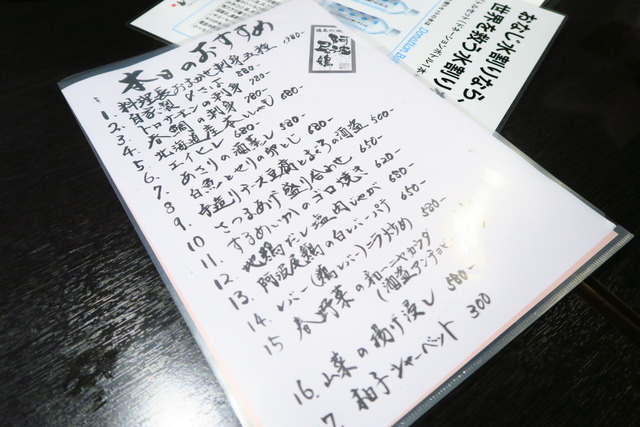 本日のおすすめ
1. 料理長おまかせ刺身五種 1380-
2. 自家製〆さば 580-
3. トロサーモンの刺身 780-
4. 春鯛の刺身 780-
5. 北海道産本ししゃも 680-
6. エイヒレ 680-
7. あさりの酒蒸し 580-
8. 白魚とせりの卵とじ 680-
9. 手造りチーズ豆腐とまぐろの酒盗 500-
10 さつまあげ盛り合わせ 650-
11. するめいかのゴロ焼き 620-
12. 地鶏だし塩肉じゃが 680-
13. 阿波尾鶏の白レバーパテ 650-
14. レバー(鶏レバー)ニラ炒め
15 春野菜の和ーニャカウダ 580-
(酒盗アンチョビ
16. 山菜の揚げ浸し 580-
7. 柚子シャーベット 300
おなじ水割りなら、
世界を救う水割り
Donation